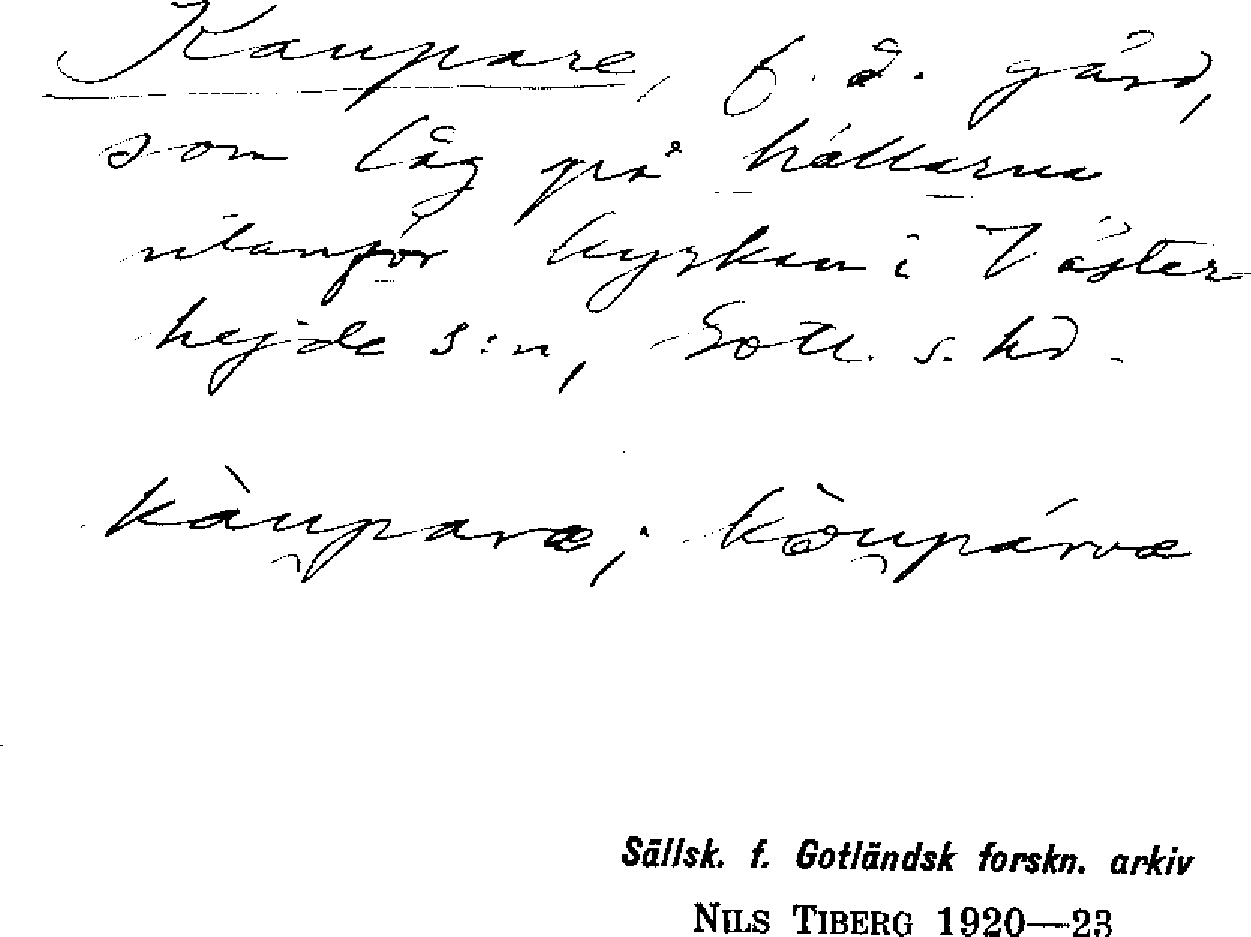 Kaupare, f. d. gård,
som låg på hällarna
utanför kyrkan i Väster-
hejde s:n, Gotl. s. hd.
kàu̯paræ; kòu̯párvæ
Sällsk. f. Gotländsk forskn. arkiv
NILS TIBERG 1920—23